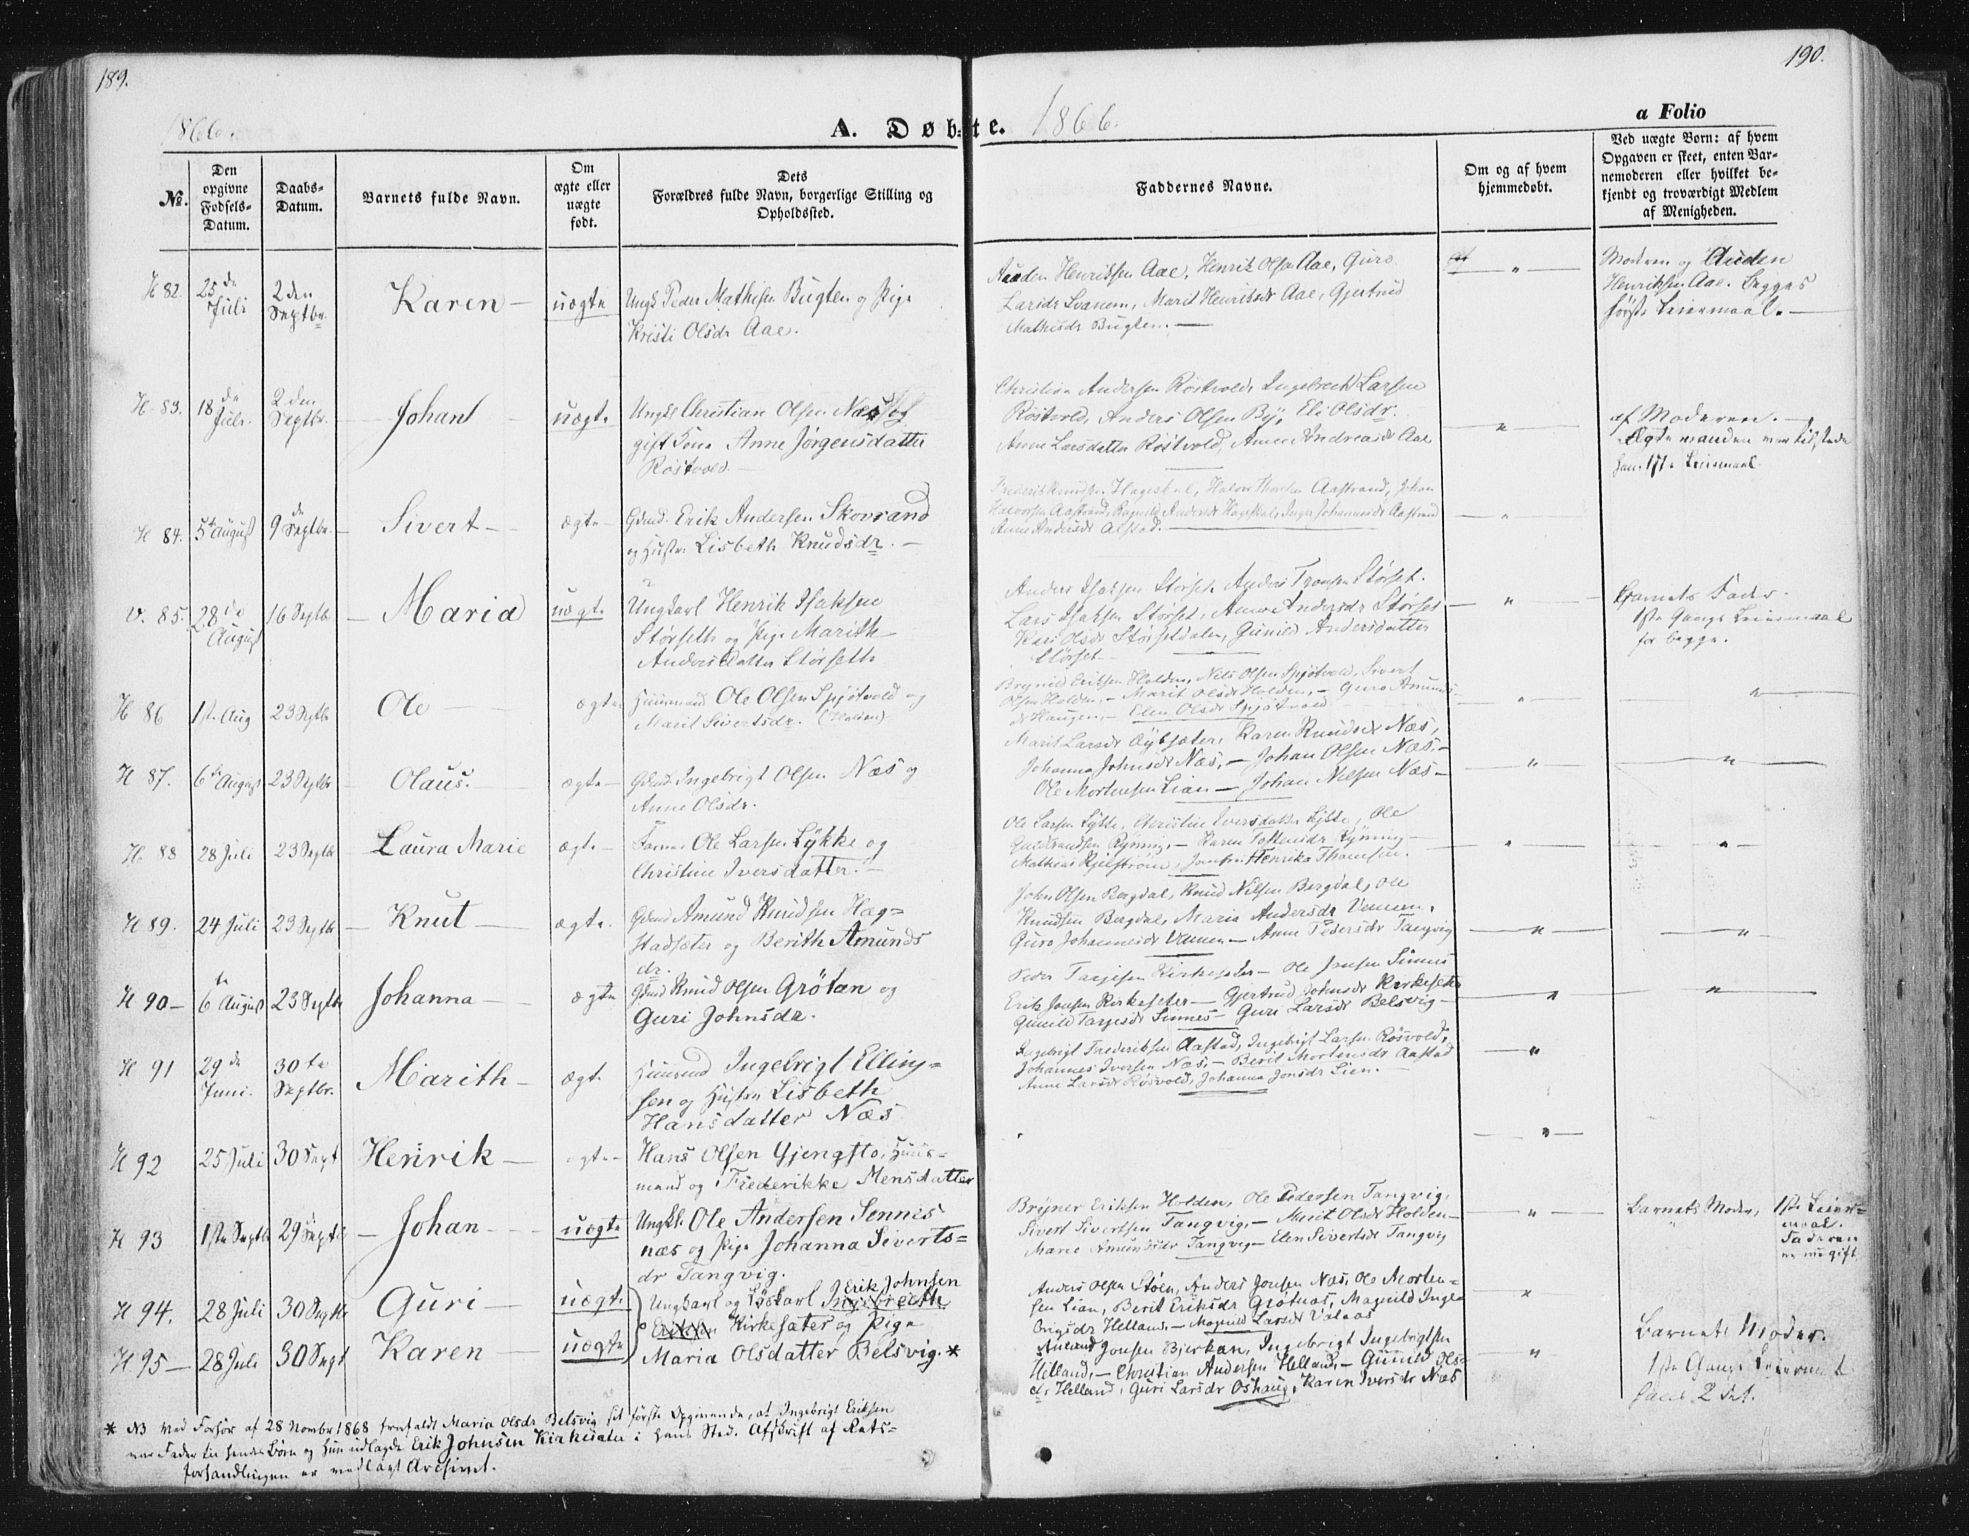 189.
190.
1866.
A. Døbte.
1866.
a Folio
No.
Den opgivne Fødsels-Datum.
Daabs-Datum.
Barnets fulde Navn.
Om ægte eller uægte født.
Dets Forældres fulde Navn, borgerlige Stilling og Opholdssted.
Faddernes Navne.
Om og af hvem hjemmedøbt.
Ved uægte Børn: af hvem Opgaven er skeet, enten Barnemoderen eller hvilket bekjendt og troværdigt Medlem af Menigheden.
H 82. 25de Juli 2den Septbr. Karen – uægte Ungk Peder Mathisen Bugten og Pige
Kristi Olsdr Aae.
Auden Henriksen Aae, Henrik Olsen Aae, Guro
Larsdr Svanem, Marit Henriksdr Aae, Gjertrud
Mathisdr Bugten. –
Moderen og Auden
Henriksen Aae. Begges
første Leiermaal. –
H. 83. 18de Juli. 2den Septbr. Johan – uægte Ungk Christian Olsen Næs og
gift Kone Anne Jørgensdatter
Röstvold. –
Christian Andersen Röstvold, Ingebrecht Larsen
Röstvold, Anders Olsen By, Eli Olsdr.
Anne Larsdatter Röstvold, Anne Andreasdr Aae
af Moderen. –
Ægtemanden var tilstede
H 84. 5te August 9de Septbr. Sivert – ægte – Gdmd. Erik Andersen Skovrand
og Hustru Lisbeth Knudsdr. –
Halvorsen Aastrand, Ragnild Andersdr Hagestal, Inger Johannesdr Aastrand
Anne Andersdr Alstad.
V. 85. 28de August 16 Septbr – Maria uægte Ungkarl Henrik Isaksen
Størseth og Pige Marith
Andersdatter Størseth
Anders Isaksen Störset, Anders Tronsen Störset.
Lars Isaksen Störset, Anne Andersdr Störset
Kari Olsdr Störsetdalen, Gunild Andersdatter
Störset –
Barnets Fader.
1ste Gangs Leiermaal
for begge.
H 86 1ste Aug 23 Septbr Ole – ægte Huusmand Ole Olsen Spjötvold og
Marit Sivertsdr. (Holden)
Brynild Eriksen Holden, Nils Olsen Spjötvold, Sivert
Olsen Holden, – Marit Olsdr Holden, – Guro Amunds-
dr Haugen, – Elen Olsdr Spjötvold
H 87. 6te August 23 Septbr – Olaus. – ægte – Gdmd Ingebrigt Olsen Næs og
Anne Olsdr.
Marit Larsdr Oybsæter, Karen Knudsdr Næs,
Johanna Johnsdr Næs, – Johan Olsen Næs, –
Ole Mortensen Lian – Johan Nilsen Næs –
H. 88 28 Juli 23 Septbr – Laura Marie ægte – Ole Larsen Lykke og
Christine Iversdatter. –
Ole Larsen Lykke, Christine Iversdatter Lykke, Ole
Gulbrandsen Rÿning, – Karen Tostensdr Rÿnning –
Mathias Kjelström, Henrika Thomsen.
H 89. 24 Juli 23 Septbr – Knut – ægte. Gdmd Amund Knudsen Hag-
stadsæter og Berith Amunds
dr.
John Olsen Bergdal, Knud Nilsen Bergdal, Ole
Knudsen Bergdal, Marie Andersdr Vennen,
Guro Johannesdr Vennen – Anne Pedersdr Tangvig
H 90 – 6te August 23 Septbr Johanna – ægte Gdmd Knud Olsen Grötan og
Guri Johnsdr.
Peder Tarjesen Kirkesæter – Ole Jonsen Sinnes
Erik Jonsen Kirkesæter – Gjertrud Johnsdr Kirkesæter
Gunild Tarjesdr Sinnes – Guri Larsdr Belsvig –
H 91 29de Juni. 30te Septbr. Marith – ægt. Huusmd Ingebrigt Elling-
sen og Hustru Lisbeth
Hansdatter Næs
Ingebrigt Frederiksen Aastad, Ingebrigt Larsen Rösvold,
Johannes Iversen Næs, – Berit Mortensdr Aastad
Anne Larsdr Rösvold, Johanna Jonsdr Lien. –
H 92 25 Juli 30 Sept Henrik – ægte – Hans Olsen Gjengsto, Huus-
mand og Frederikke Mensdatter
H 93 1ste Septbr 29 Septbr – Johan – uægte Ungkl. Ole Andersen Sennes
næs og Pige Johanna Siverts-
dr Tangvig.
Brÿner Eriksen Holden, Ole Pedersen Tangvig,
Sivert Sivertsen Tangvig, – Marit Olsdr Holden –
Marie Amundsdr Tangvig – Elen Sivertsdr Tangvig
Barnets Moder, 1ste Leier-
maal.
Faderen
er nu gift
H 94. 28 Juli 30 Septbr Guri – uægte Ungkarl og Erik Johnsen
H 95 – 28 Juli 30 Sept Karen – uægte Kirkesæter og Pige
Maria Olsdatter Belsvig. *
Anders Olsen Stöen, Anders Jonsen Næs, Ole Morten-
sen Lian, Berit Eriksdr Grötnæs, Magnild Inge-
brigsdr Helland, – Magnild Larsdr Valaas
Amund Jonsen Bjerkan, Ingebrigt Ingebrigtsen
Helland, – Christian Andersen Helland, – Gunild Ols-
dr Helland, Guri Larsdr Oshaug, Karen Iversdr Næs
Barnets Moder.
1ste Gangs Leiermaal
hans 2det.
* NB Ved Forhør af 28 Novbr 1868 frafaldt Maria Olsdr Belsvig sit første Opgivende, at Ingebrigt Eriksen
var Fader til hendes Börn og hun udlagde Erik Johnsen Kirkesæter i hans Sted. Afskrift af Rets-
forhandlingen er vedlagt Archivet.